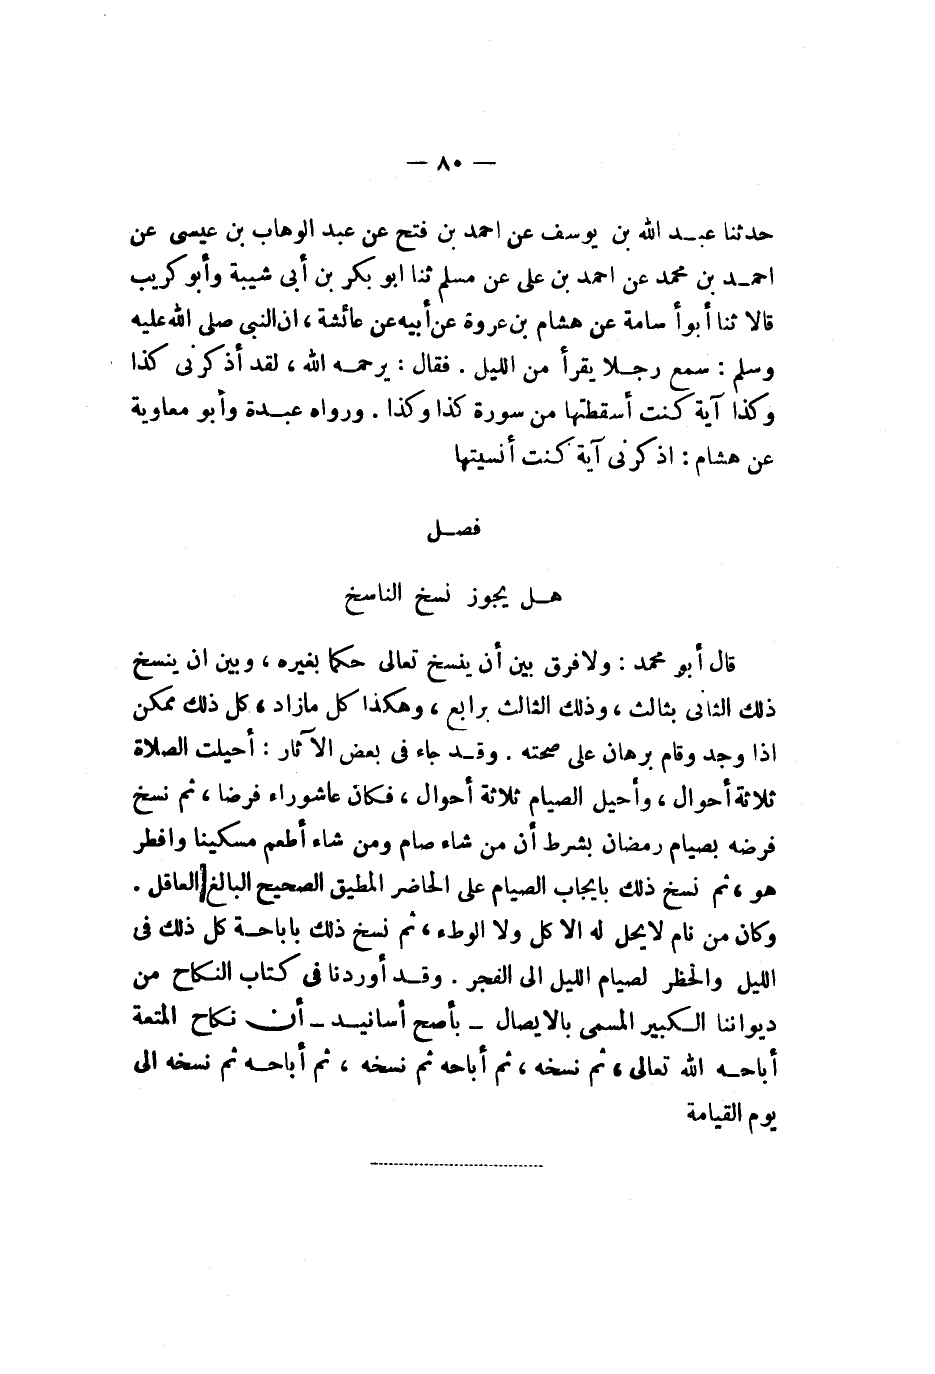 — ٨٠ —
حدثنا عبد الله بن يوسف عن احمد بن فتح عن عبد الوهاب بن عيسى عن
احمد بن محمد عن احمد بن على عن مسلم ثنا ابو بكر بن أبى شيبة وأبو كريب
قالا ثنا أبو أسامة عن هشام بن عروة عن أبيه عن عائشة ، ان النبي صلى الله عليه
وسلم : سمع رجلا يقرأ من الليل . فقال : يرحمه الله ، لقد أذكرنى كذا
وكذا آية كنت أسقطتها من سورة كذا وكذا . ورواه عبدة وأبو معاوية
عن هشام : اذكرنى آية كنت أنسيتها
فصل
هل يجوز نسخ الناسخ
قال أبو محمد : ولا فرق بين أن ينسخ تعالى حكما بغيره ، وبين ان ينسخ
ذلك الثانى بثالث ، وذلك الثالث برابع ، وهكذا كل مازاد ، كل ذلك ممكن
اذا وجد وقام برهان على صحته . وقد جاء فى بعض الآثار : أحيلت الصلاة
ثلاثة أحوال ، وأحيل الصيام ثلاثة أحوال ، فكان عاشوراء فرضا ، ثم نسخ
فرضه بصيام رمضان بشرط أن من شاء صام ومن شاء أطعم مسكينا وافطر
هو ، ثم نسخ ذلك بايجاب الصيام على الحاضر المطيق الصحيح البالغ العاقل .
وكان من نام لا يحل له الاكل ولا الوطء ، ثم نسخ ذلك باباحة كل ذلك فى
الليل والحظر لصيام الليل الى الفجر . وقد أوردنا فى كتاب النكاح من
ديواننا الكبير المسمى بالايصال - بأصح أسانيد - أن نكاح المتعة
أباحه الله تعالى ، ثم نسخه ، ثم أباحه ثم نسخه ، ثم أباحه ثم نسخه الى
يوم القيامة